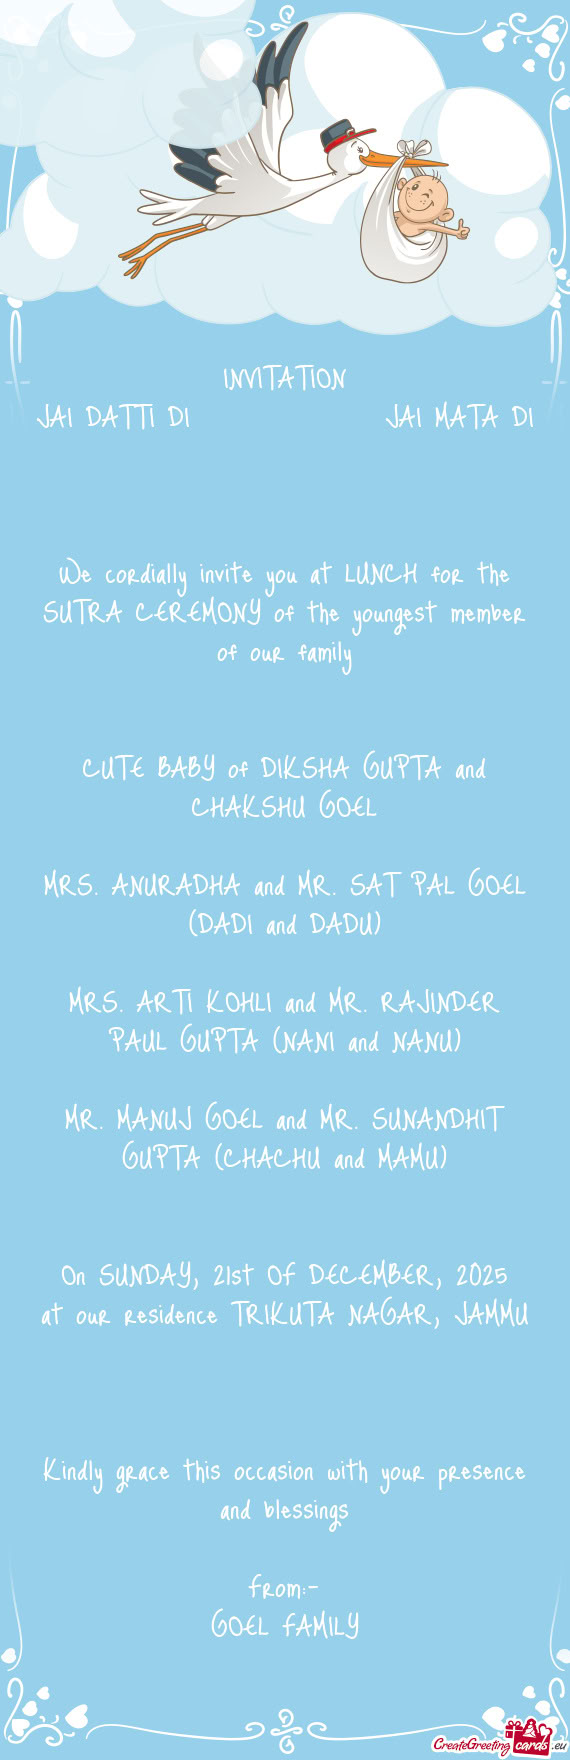 INVITATION
JAI DATTI DI JAI MATA DI
We cordially invite you at LUNCH for the
SUTRA CEREMONY of the youngest member
of our family
CUTE BABY of DIKSHA GUPTA and
CHAKSHU GOEL
MRS. ANURADHA and MR. SAT PAL GOEL
(DADI and DADU)
MRS. ARTI KOHLI and MR. RAJINDER
PAUL GUPTA (NANI and NANU)
MR. MANUJ GOEL and MR. SUNANDHIT
GUPTA (CHACHU and MAMU)
On SUNDAY, 21st OF DECEMBER, 2025
at our residence TRIKUTA NAGAR, JAMMU
Kindly grace this occasion with your presence
and blessings
From:-
GOEL FAMILY
CreateGreetingcards.eu